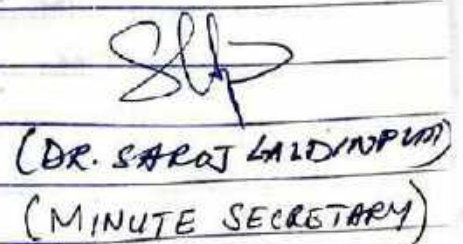 (DR. SAROJ LALDINPUII)
(MINUTE SECRETARY)